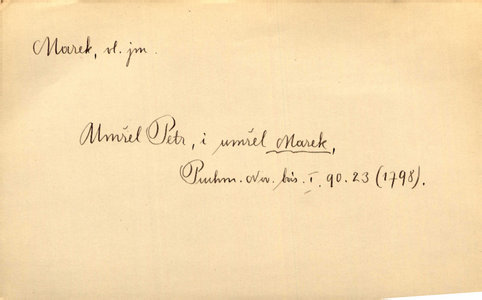 Marek, vl. jm.
Umřel Petr, i umřel Marek,
Puchm. Nov. bás. I. 90. 23 (1798).